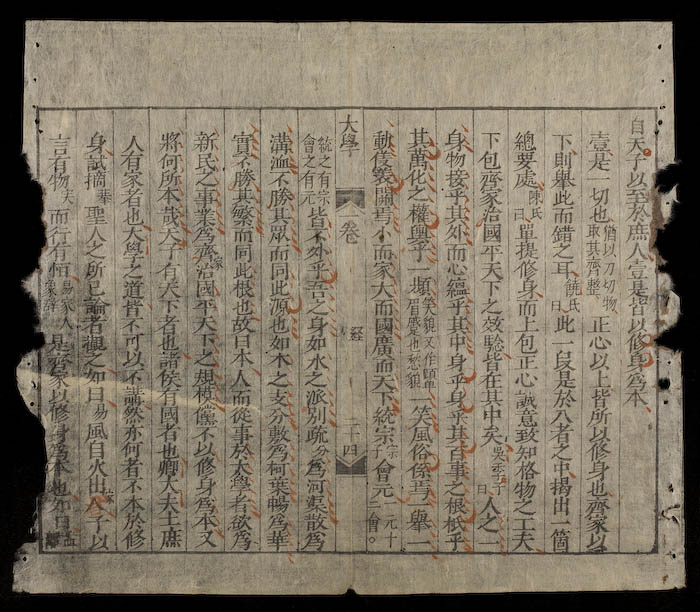 自天子以至於庶人壹是皆以修身爲本
壹是一切也猶以刀切物取其齊整正心以上皆所以修身也齊家以
下則舉此而錯之耳饒氏曰此一段是於八者之中揭出一箇
總要處陳氏曰單提修身而上包正心誠意致知格物之工夫
下包齊家治國平天下之效驗皆在其中矣吳季子曰人之一
身物接乎其外而心蘊乎其中身乎身乎其百事之根柢乎
其萬化之權輿乎一嚬笑貌又作顰眉蹙也愁貌一笑風俗係焉一舉一
動僞關焉小而家大而國廣而天下統宗會元
大學
一卷
經
二十四
統之有宗會之有元皆不外乎吾之身如水之派別疏爲河渠散爲
溝洫不勝其衆而同此源也如木之支分敷爲柯葉暢爲華
實不勝其繁而同此根也故曰本人而從事於大學者欲爲
新民之事業爲齊家治國平天下之規模儻不以修身爲本又
將何所本哉天子有天下者也諸侯有國者也卿大夫士庶
人有家者也大學之道皆不可以不講然亦何者不本於修
身試摘聖人之所已論者觀之如曰易風自火出家君子以
言有物夫而行有恒易家人象辭是齊家以修身爲本也如曰